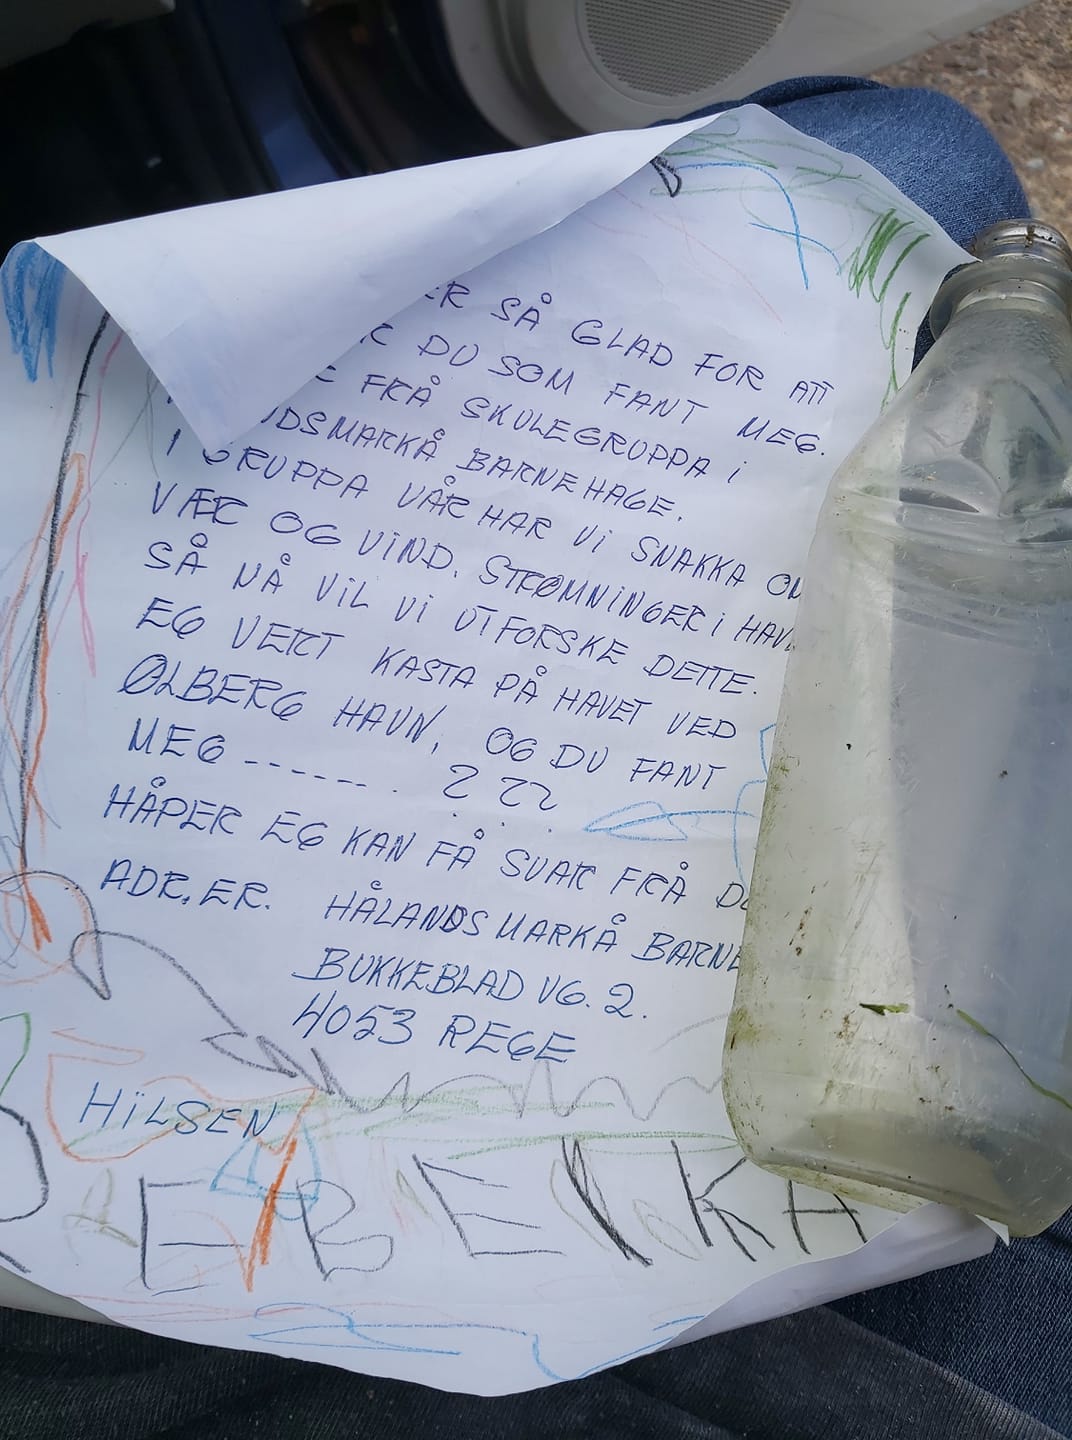 SÅ GLAD FOR ATT
DU SOM FANT MEG.
FRÅ SKULEGRUPPA i
BARNEHAGE.
I GRUPPA VÅR HAR Vi SNAKKA
VÆR OG ViND. STRØMNiNGER i
SÅ NÅ ViL Vi UTFORSKE DETTE.
EG VERT KASTA PÅ HAVET VED
ØLBERG HAVN, OG DU FANT
MEG ------. ? ??
HÅPER EG KAN FÅ SVAR FRÅ
ADR.ER. HÅLANDSMARKÅ
BUKKEBLAD VG. 2.
4053 REGE
HiLSEN
EBEKKA